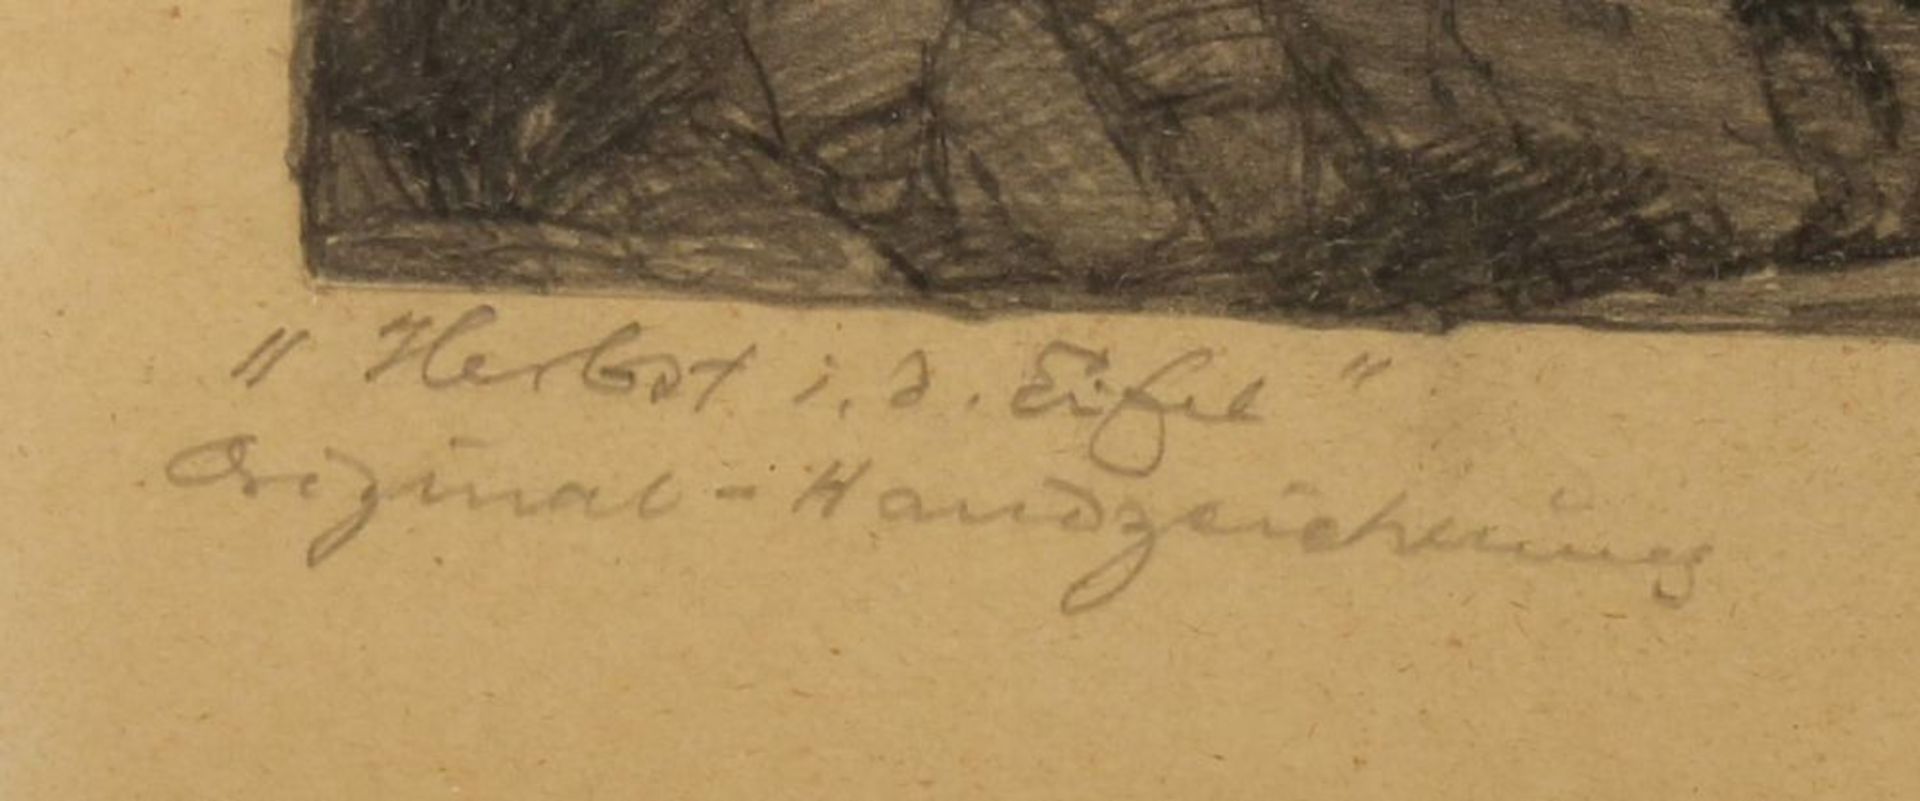 "Herbst i. d. Eifel"
Original - Handzeichnung